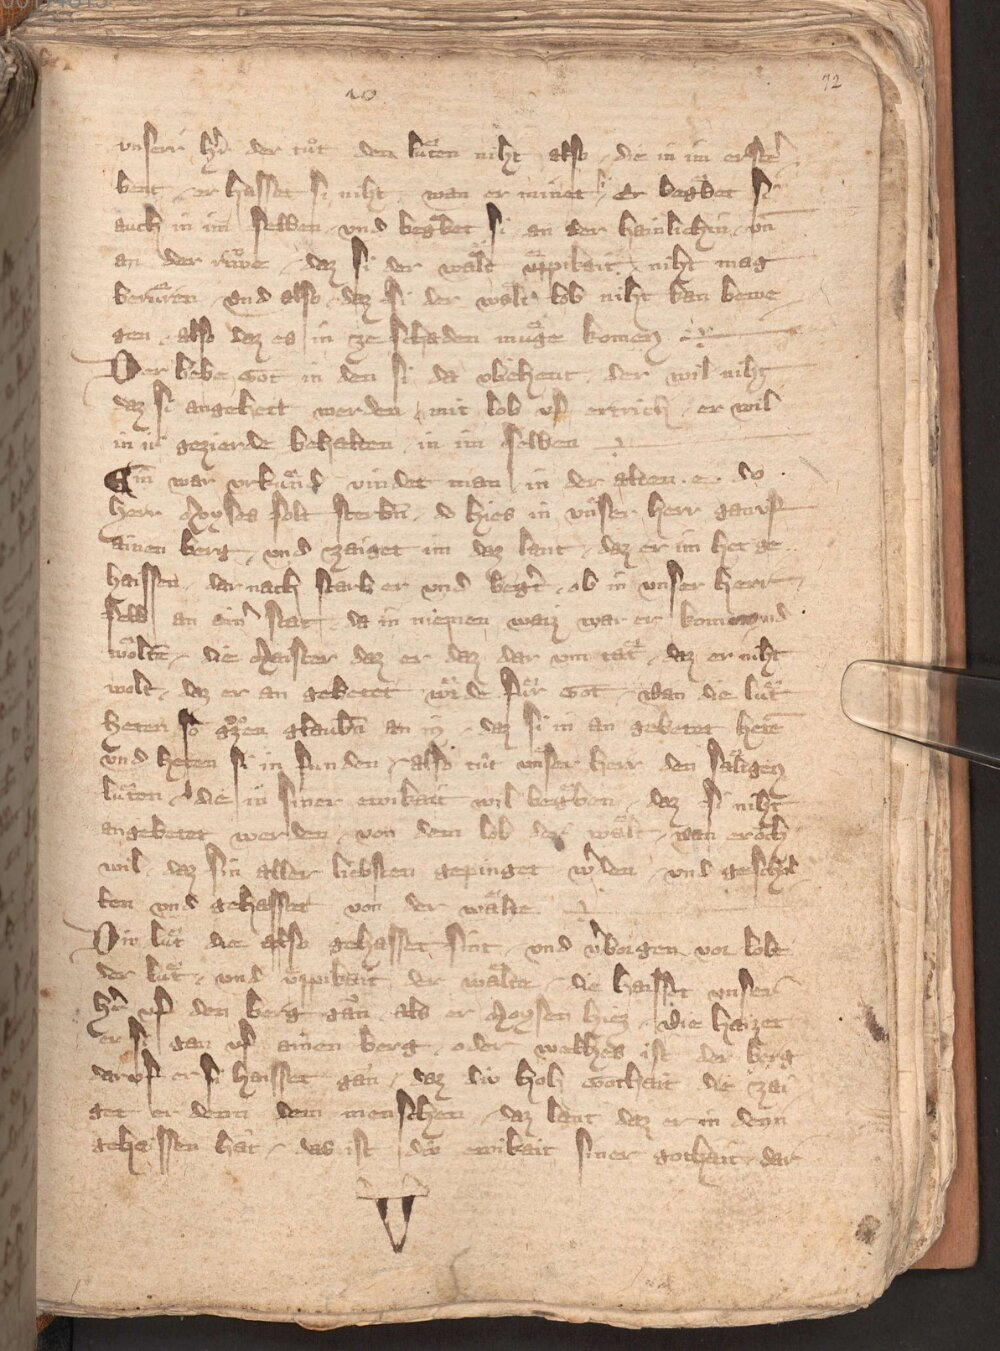 72
unserr hr̄ der tuͦt den luͤten niht also die in im erste
bent er hasset si niht wan er minet si Er begabet Si
auch in im selben vnd begabet Si an der hainlichin vn̄
an der ruͦwe daz Si der waͤlt uͤppikait niht mag
beruͤren vnd also daz si der waͤlt lob niht kan bewe
gen also daz es in ze schaden muͤge komen
Der lebe Got in den si da der wil niht
daz si angebett werden mit lob vf ertrich er wil
in ir gezierde behalten in im selben
Ein war vrkuͤnd vindet man in der alten e do
herr Moyses solt sterbn̄ do hies in vnser herr gan vf
ainen berg vnd zaiget im daz lant daz er im het ge
haissen dar nach starb er vnd begr̄b in vnser herr
selb an ainr̄ stat da in niemen waiz war er komen
woltē die Maister daz er daz dar vm taͤt daz er niht
wolt daz er an gebetet wrde fuͤr Got wan die luͤt
heten so grozen glaubn̄ an in daz si in an gebetet hetē
vnd heten si in funden also tuͦt vnser herr den saͤligen
luͤten die in siner ewikait wil begaben daz si niht
angebetet werden von dem lob der waͤlt wan er och
wil daz sin aller liebsten gepinget wrden vnd geschol
ten vnd gehasset von der waͤlte
Div luͤt die also gehasset sint vnd vborgen vor lobe
der luͤt vnd uͤppikait der waͤlte die haisset vnser
hr̄ vf den berg gan als er Moysen hiez die haizet
er si gan vf ainen berg oder welhes ist der berg
dar vf er si haisset gan daz div hoh Gothait die zai
get er denn dem menschen daz lant daz er in denn
gehaissen hat das ist div ewikait siner gothait dar